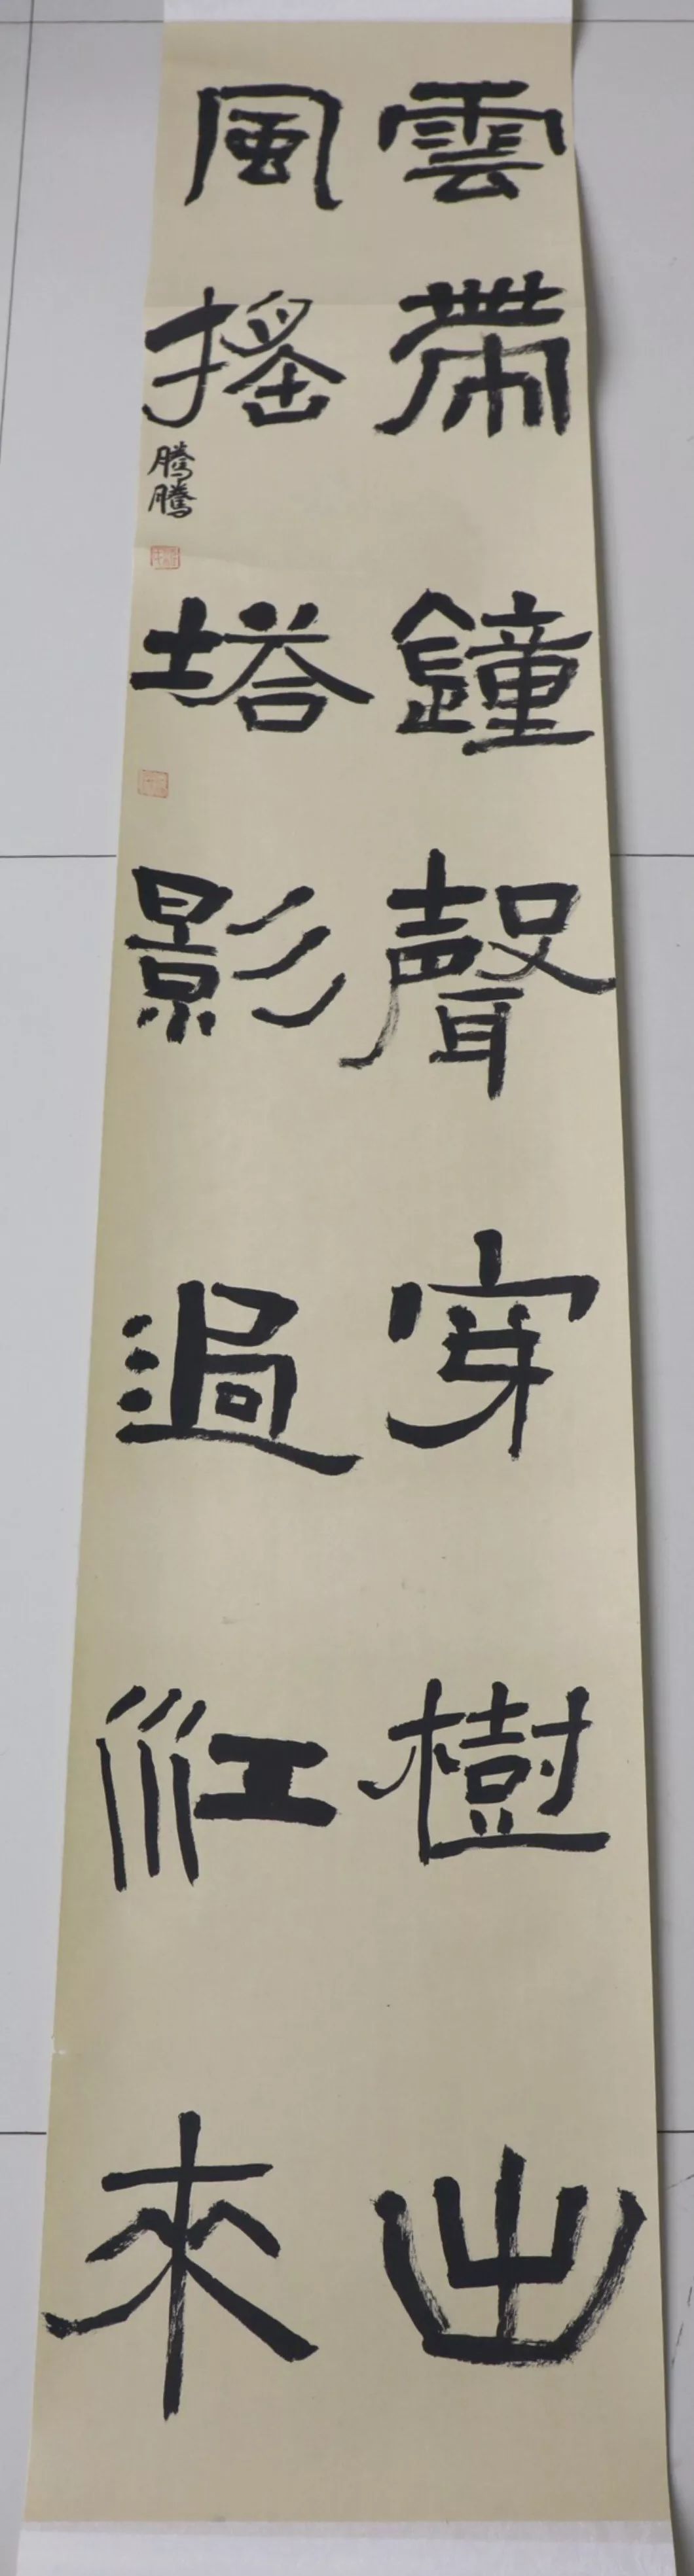 雲帶鐘聲穿樹出
風搖塔影過江來
騰騰